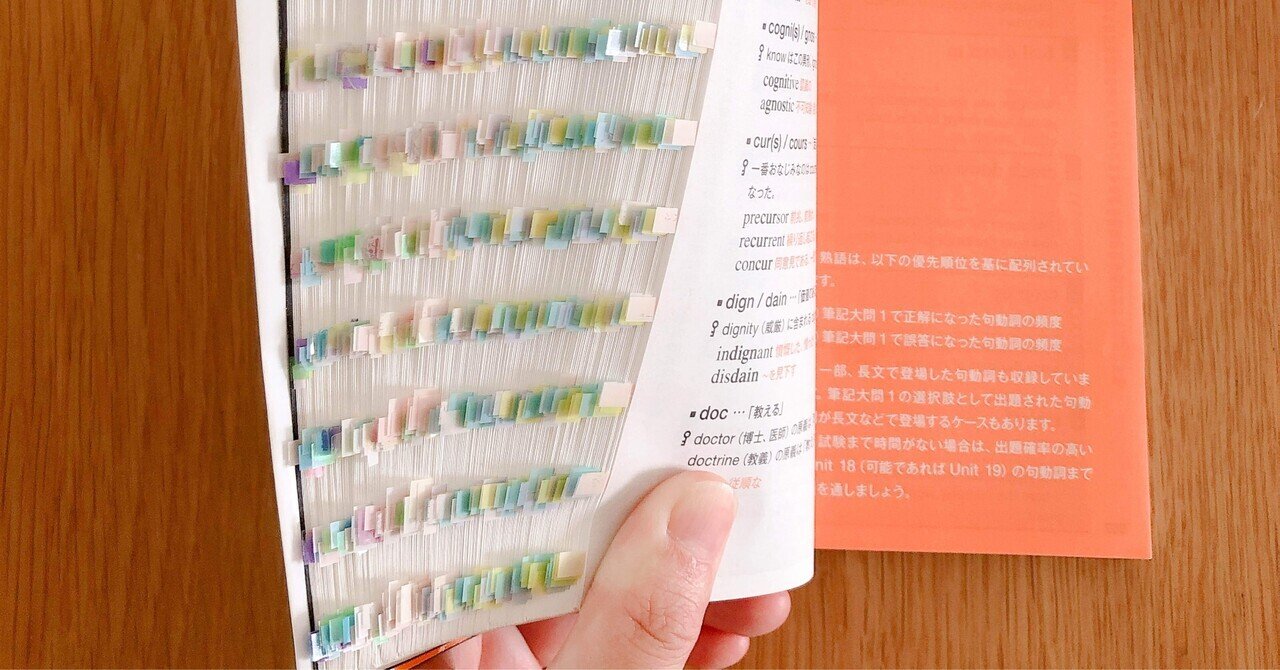 ▪ cogni(s) / gnos
know はこの
cognitive
agnostic 不可知論
▪ cur(s) / cours …
一番おなじみなのは
なった。
precursor
recurrent 繰り返し起こる
concur 同意見である
▪ dign / dain …「価値
dignity（威厳）に含まれる
indignant 憤慨した
disdain ～を見下す
▪ doc …「教える」
doctor（博士、医師）の原義は
doctrine（教義）の原義は「教
従順な
熟語は、以下の優先順位を基に配列されてい
す。
筆記大問 1 で正解になった句動詞の頻度
筆記大問 1 で誤答になった句動詞の頻度
一部、長文で登場した句動詞も収録していま
。筆記大問 1 の選択肢として出題された句動
が長文などで登場するケースもあります。
試験まで時間がない場合は、出題確率の高い
nit 18（可能であれば Unit 19）の句動詞まで
を通しましょう。